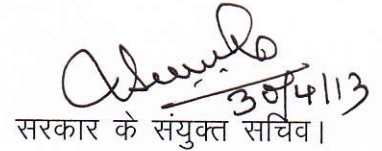 30/4/13
सरकार के संयुक्त सचिव।